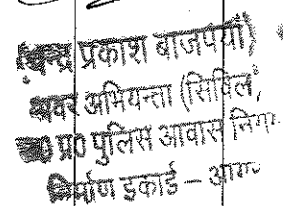 (चन्द्र प्रकाश बाजपेयी)
अवर अभियन्ता (सिविल)
उ0 प्र0 पुलिस आवास निग
निर्माण इकाई – आग